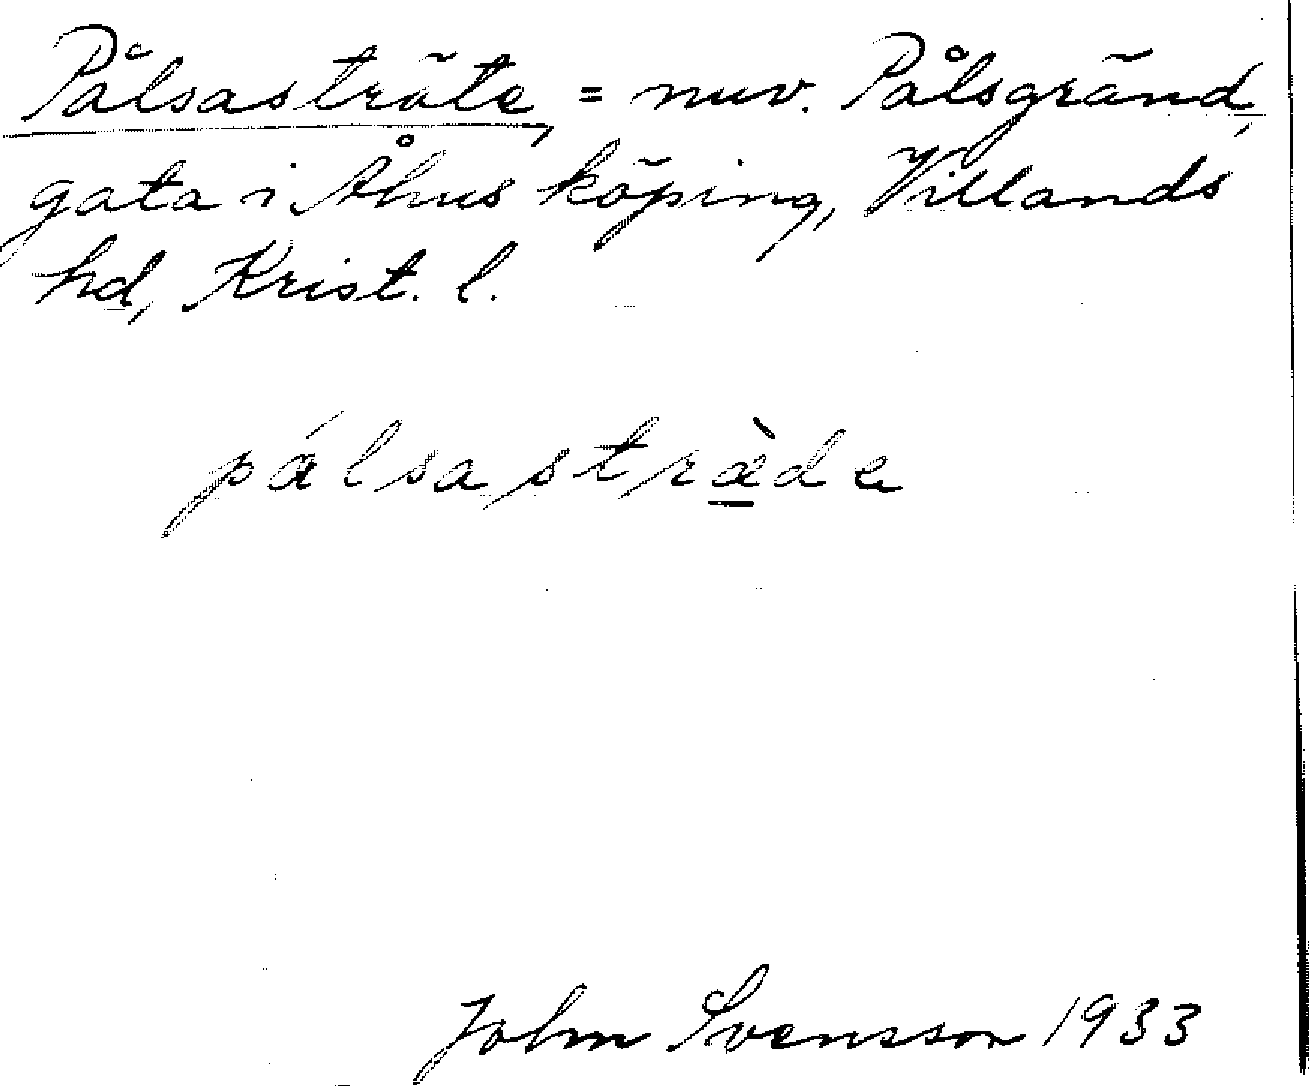 Pålsasträte, = nuv. Pålsgränd,
gata i Åhus köping, Villands
hd, Krist. l.
pálsasträ̀de
John Svensson 1933